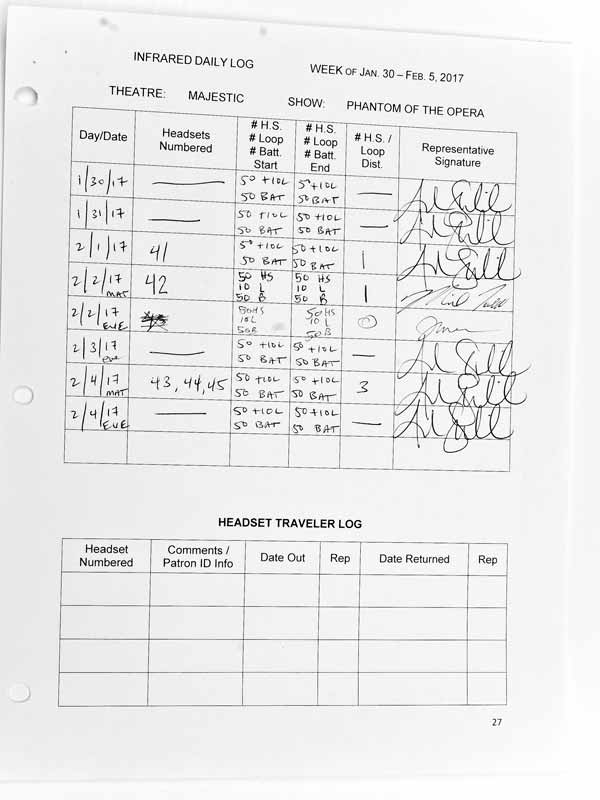 INFRARED DAILY LOG WEEK OF JAN. 30 – FEB. 5, 2017
THEATRE: MAJESTIC SHOW: PHANTOM OF THE OPERA
Day/Date Headsets Numbered # H.S. # Loop # Batt. Start # H.S. # Loop # Batt. End # H.S. / Loop Dist. Representative Signature
1/30/17 — 50 +10L 50 BAT 50 +10L 50 BAT —
1/31/17 — 50 +10L 50 BAT 50 +10L 50 BAT —
2/1/17 41 50 +10L 50 BAT 50 +10L 50 BAT 1
2/2/17 MAT 42 50 HS 10 L 50 B 50 HS 10 L 50 B 1
2/2/17 EVE 50HS 10L 50B 50HS 10 L 50 B 0
2/3/17 eve — 50 +10L 50 BAT 50 +10L 50 BAT —
2/4/17 MAT 43, 44, 45 50 +10L 50 BAT 50 +10L 50 BAT 3
2/4/17 EVE — 50 +10L 50 BAT 50 +10L 50 BAT —
HEADSET TRAVELER LOG
Headset Numbered Comments / Patron ID Info Date Out Rep Date Returned Rep
27